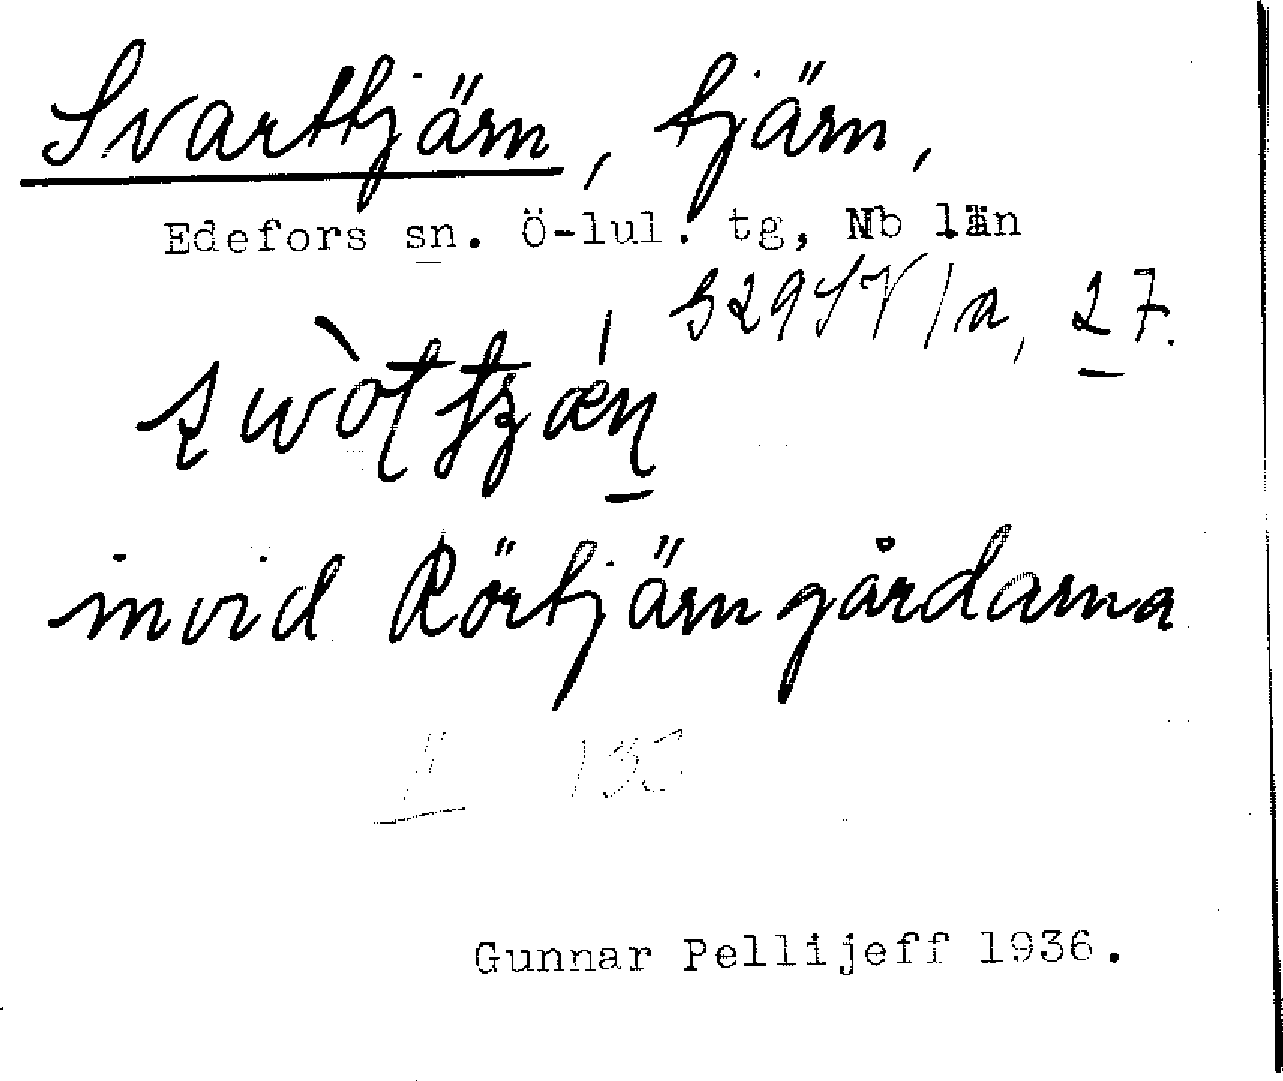 Svarttjärn, tjärn,
Edefors sn. Ö-lul. tg, Nb län
329 SV/a, 27.
invid Rörtjärngårdarna
133
Gunnar Pellijeff 1936.